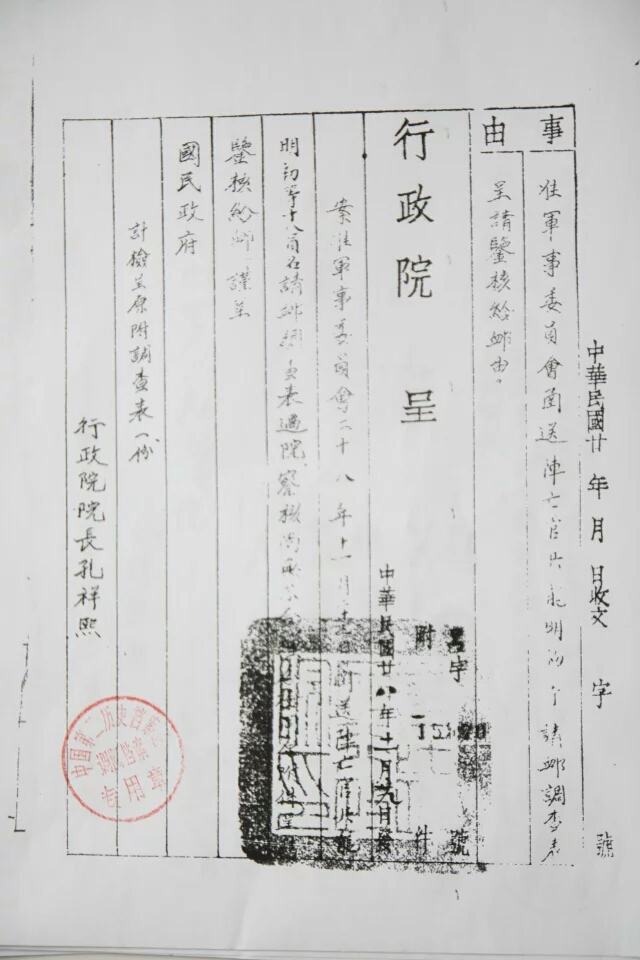 中華民國廿 年 月 日收文 字 號
事由
准軍事委員會函送陣亡官兵 明初 請卹調查表
呈請鑒核給卹由。
行政院 呈
字 號
附 件
中華民國廿八年十二月 日
案准軍事委員會二十八年十一月 送陣亡官兵
明初等十八員名請卹調查表過院察核尚
鑒核給卹 謹呈
國民政府
計檢呈原附調查表一份
行政院院長孔祥熙
中国第二历史档案馆
档案
专用章